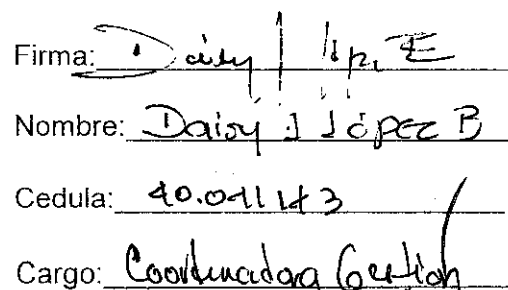 Firma: Daisy
Nombre: Daisy J López B
Cedula: 40.041143
Cargo: Coordinadora Gestión